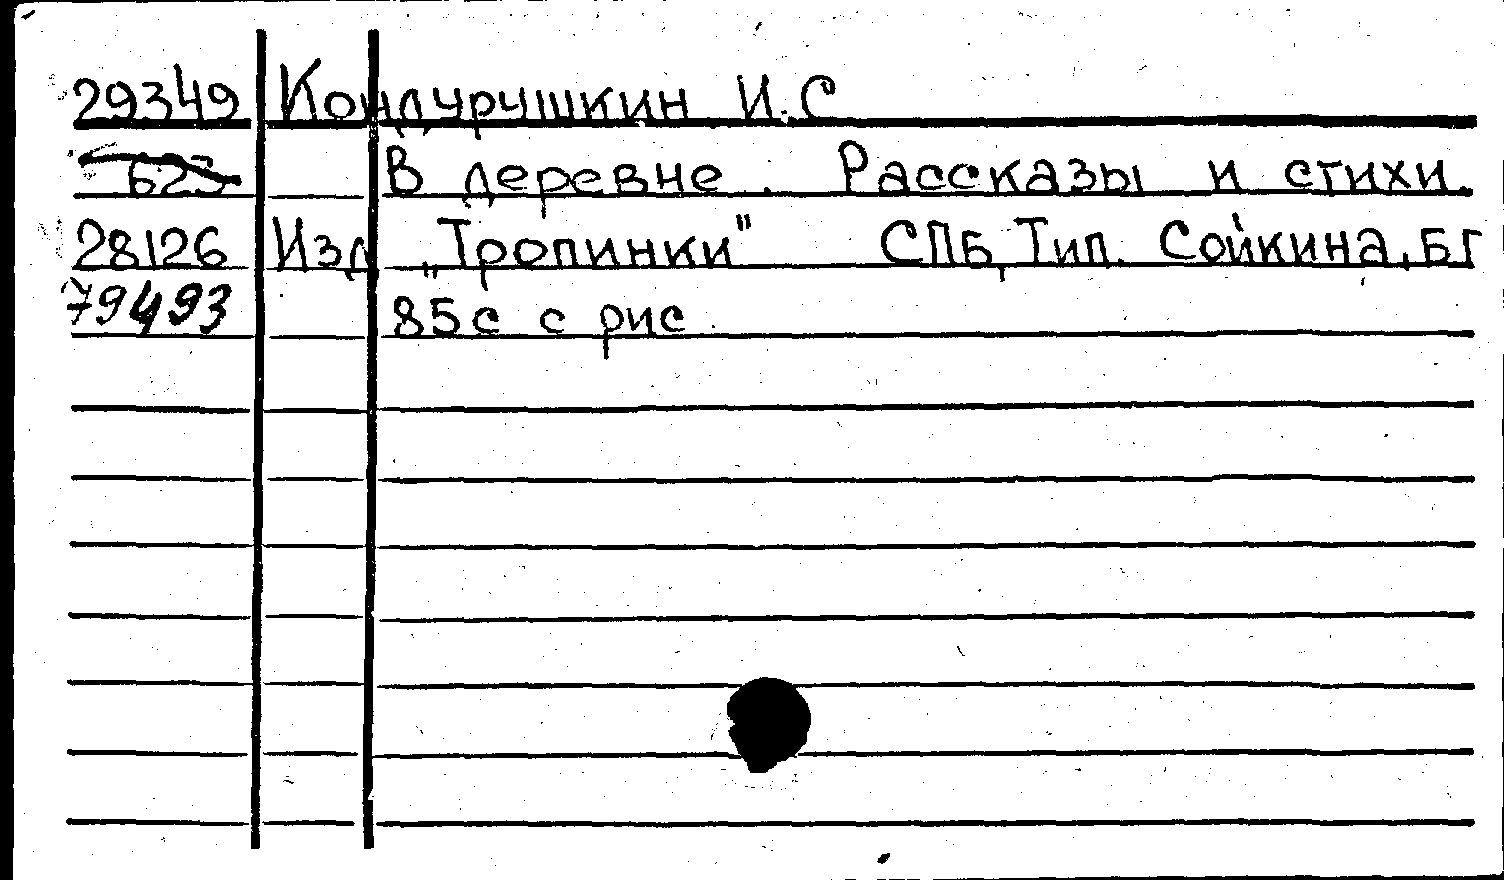 29349 Кондурушкин И.С
623 В деревне. Рассказы и стихи.
28126 Изд „Тропинки" СПБ, Тип. Сойкина, БГ
79493 85с с рис.